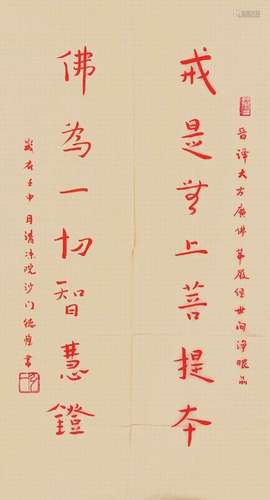 晉譯大方廣佛華嚴經世間淨眼品
戒是無上菩提本
佛為一切智慧鐙
歲在壬申
月清涼院沙門
書